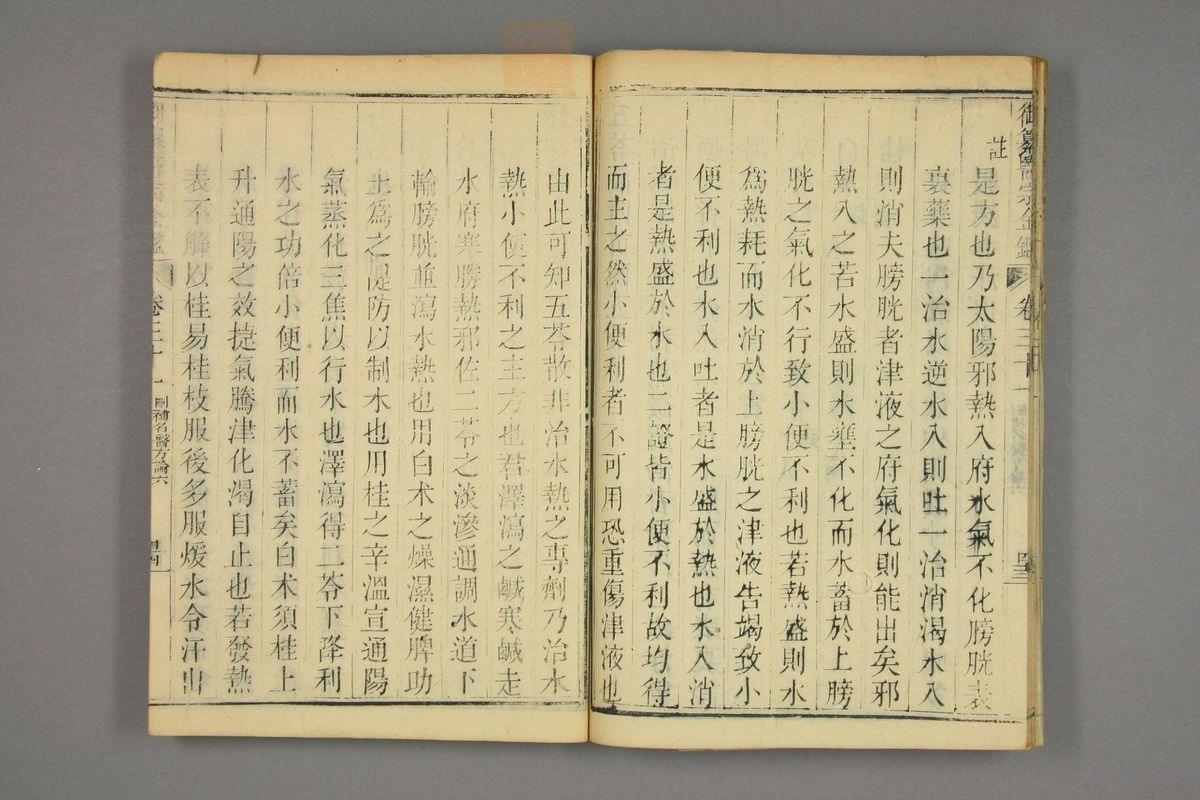 御纂醫宗金鑑 卷三十一
註
是方也乃太陽邪熱入府水氣不化膀胱表
裏藥也一治水逆水入則吐一治消渴水入
則消夫膀胱者津液之府氣化則能出矣邪
熱入之若水盛則水壅不化而水蓄於上膀
胱之氣化不行致小便不利也若熱盛則水
爲熱耗而水消於上膀胱之津液告竭致小
便不利也水入吐者是水盛於熱也水入消
者是熱盛於水也二證皆小便不利故均得
而主之然小便利者不可用恐重傷津液也
由此可知五苓散非治水熱之專劑乃治水
熱小便不利之主方也君澤瀉之鹹寒鹹走
水府寒勝熱邪佐二苓之淡滲通調水道下
輸膀胱並瀉水熱也用白术之燥濕健脾功
土爲之隄防以制水也用桂之辛溫宣通陽
氣蒸化三焦以行水也澤瀉得二苓下降利
水之功倍小便利而水不蓄矣白术須桂上
升通陽之效捷氣騰津化渴自止也若發熱
表不解以桂易桂枝服後多服煖水令汗出
卷三十一 刪補名醫方論六